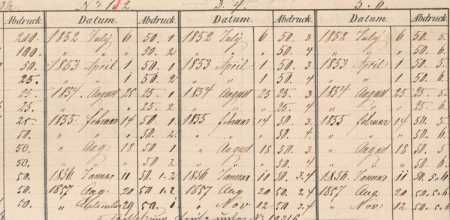 No 1.2 3.4 5.6
Datum. Abdruck Datum. Abdruck Datum. Abdruck
200. 1852 July 6 50. 1 1852 July 6 50. 3 1852 July 6 50. 5.
100. " " " 50. 2 " " 50. 4 " " 50. 6.
50. 1853 April 1 50. 1 1853 April 1 50. 3 1853 April 1 50. 5.
25. " " 1 50. 2 " " 1 50. 4 " " 1 50. 6.
25. 1854 August 25 25. 1 1854 August 25 25. 3 1854 August 25 25. 5.
25. " " " 25. 2 " " " 25. 4 " " " 25. 6.
25. 1855 Februar 14 50. 1 1855 Februar 14 50. 3 1855 Februar 14 50. 5.
50. " " " 50. 2 " " " 50. 4 " " " 50. 6.
50. " Aug 18 50. 1 " August 18 50. 3 " August 18 50. 5.
50. " " " 50. 2 " " " 50. 4 " " " 50. 6.
50. 1856 Januar 11 50. 1.2 1856 Januar 11 50. 3.4 1856 Januar 11 50. 5.6
50. 1857 Aug 20 50. 1.2 1857 Aug 20 50. 3.4 1857 Aug 20 50. 5.6
" 12 50. 1.2 " Nov 12 50. 3.4 " Nov. 12 50. 5.6